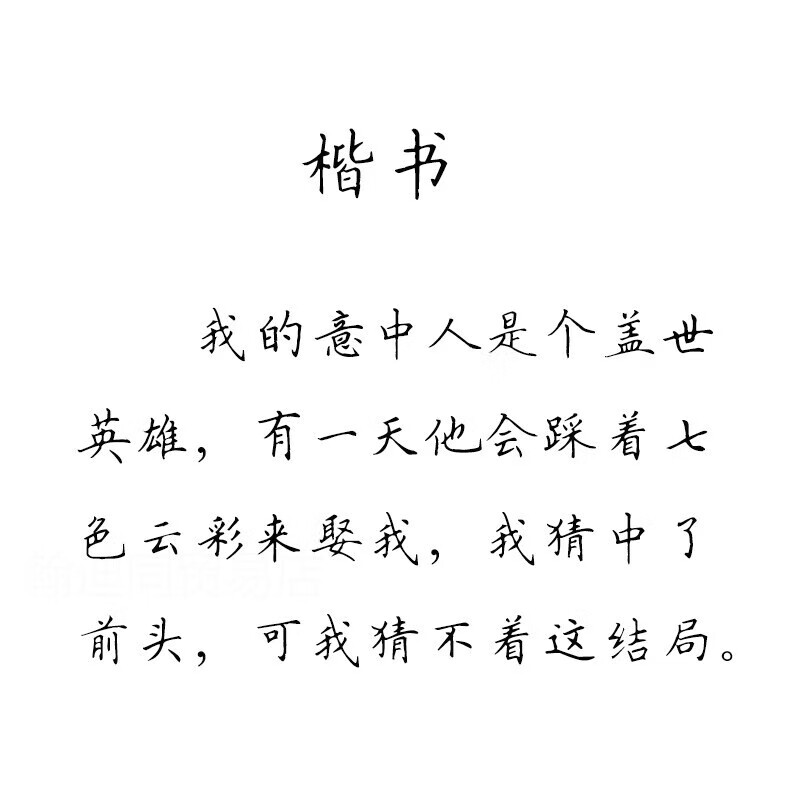 楷书
我的意中人是个盖世
英雄，有一天他会踩着七
色云彩来娶我，我猜中了
前头，可我猜不着这结局。